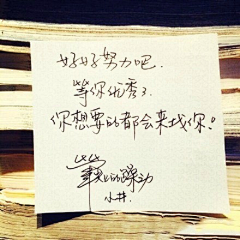 好好努力吧.
等你优秀了.
你想要的都会来找你!
小井.